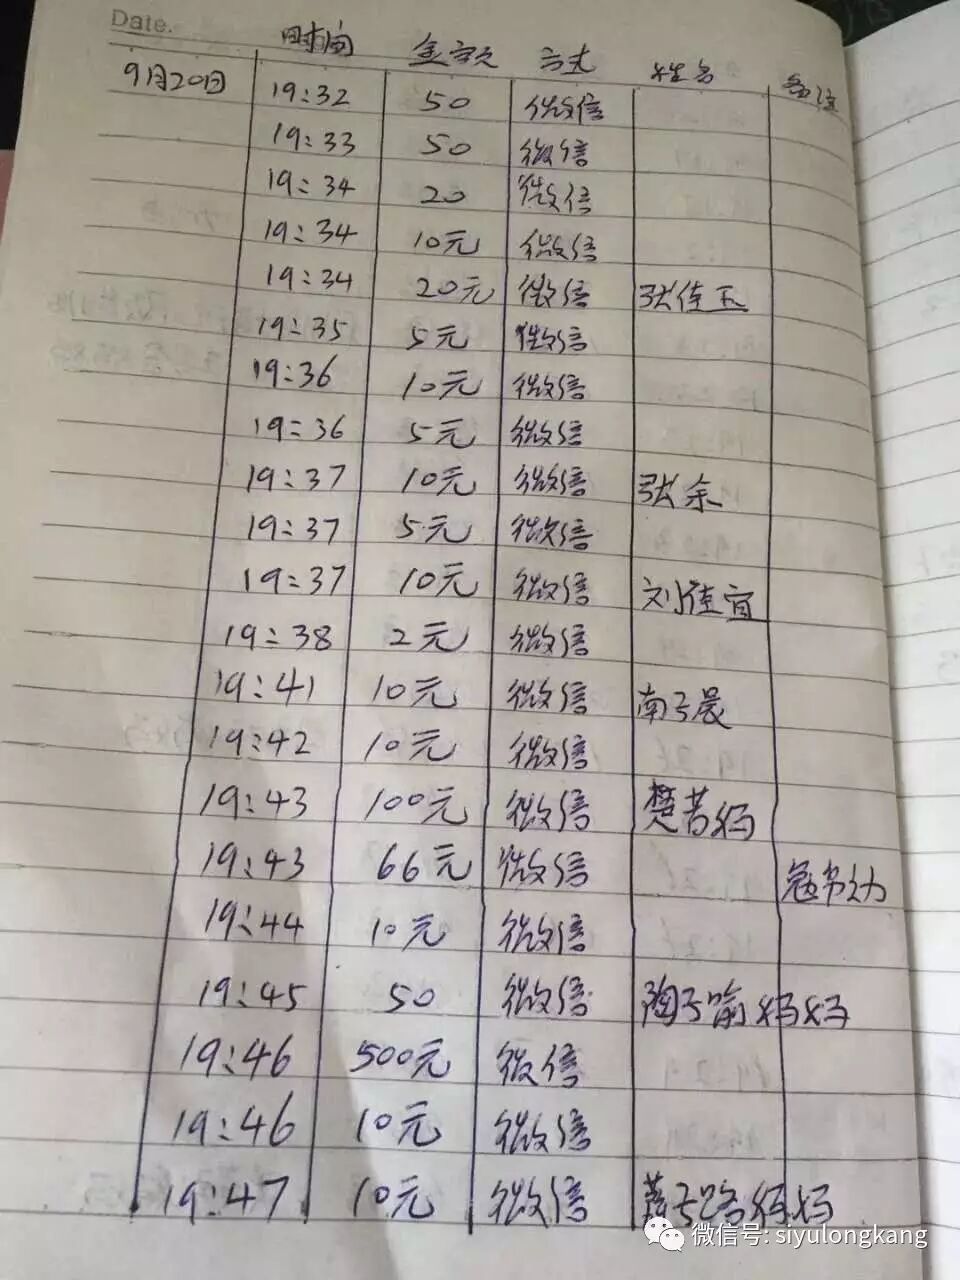 Date.
时间 金额 方式 姓名 备注
9月20日 19:32 50 微信
19:33 50 微信
19:34 20 微信
19:34 10元 微信
19:34 20元 微信 张佳玉
19:35 5元 微信
19:36 10元 微信
19:36 5元 微信
19:37 10元 微信 张余
19:37 5元 微信
19:37 10元 微信 刘佳宜
19:38 2元 微信
19:41 10元 微信 南子晨
19:42 10元 微信
19:43 100元 微信 楚若妈
19:43 66元 微信
19:44 10元 微信
19:45 50 微信 陶子喻妈妈
19:46 500元 微信
19:46 10元 微信
19:47 10元 微信 子路妈妈
微信号: siyulongkang